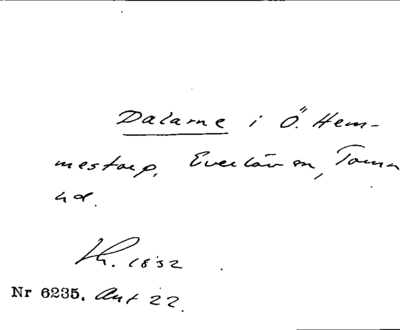 Dalarne i Ö. Hem-
mestorp, Everlöv sn, Torna
hd.
Lh. 1852.
Nr 6235. Ant 22.